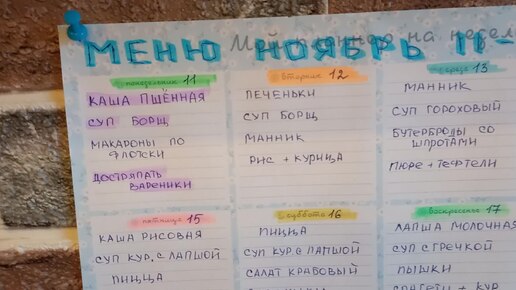 Мой планнер на недел
МЕНЮ НОЯБРЬ 11-
понедельник 11
КАША ПШЁННАЯ
СУП БОРЩ
МАКАРОНЫ ПО
ФЛОТСКИ
ДОСТРЯПАТЬ
ВАРЕНИКИ
вторник 12
ПЕЧЕНЬКИ
СУП БОРЩ
МАННИК
РИС + КУРИЦА
среда 13
МАННИК
СУП ГОРОХОВЫЙ
БУТЕРБРОДЫ СО
ШПРОТАМИ
ПЮРЕ + ТЕФТЕЛИ
пятница 15
КАША РИСОВАЯ
СУП КУР. С ЛАПШОЙ
ПИЦЦА
суббота 16
ПИЦЦА
СУП КУР. С ЛАПШОЙ
САЛАТ КРАБОВЫЙ
воскресенье 17
ЛАПША МОЛОЧНАЯ
СУП С ГРЕЧКОЙ
ПЫШКИ